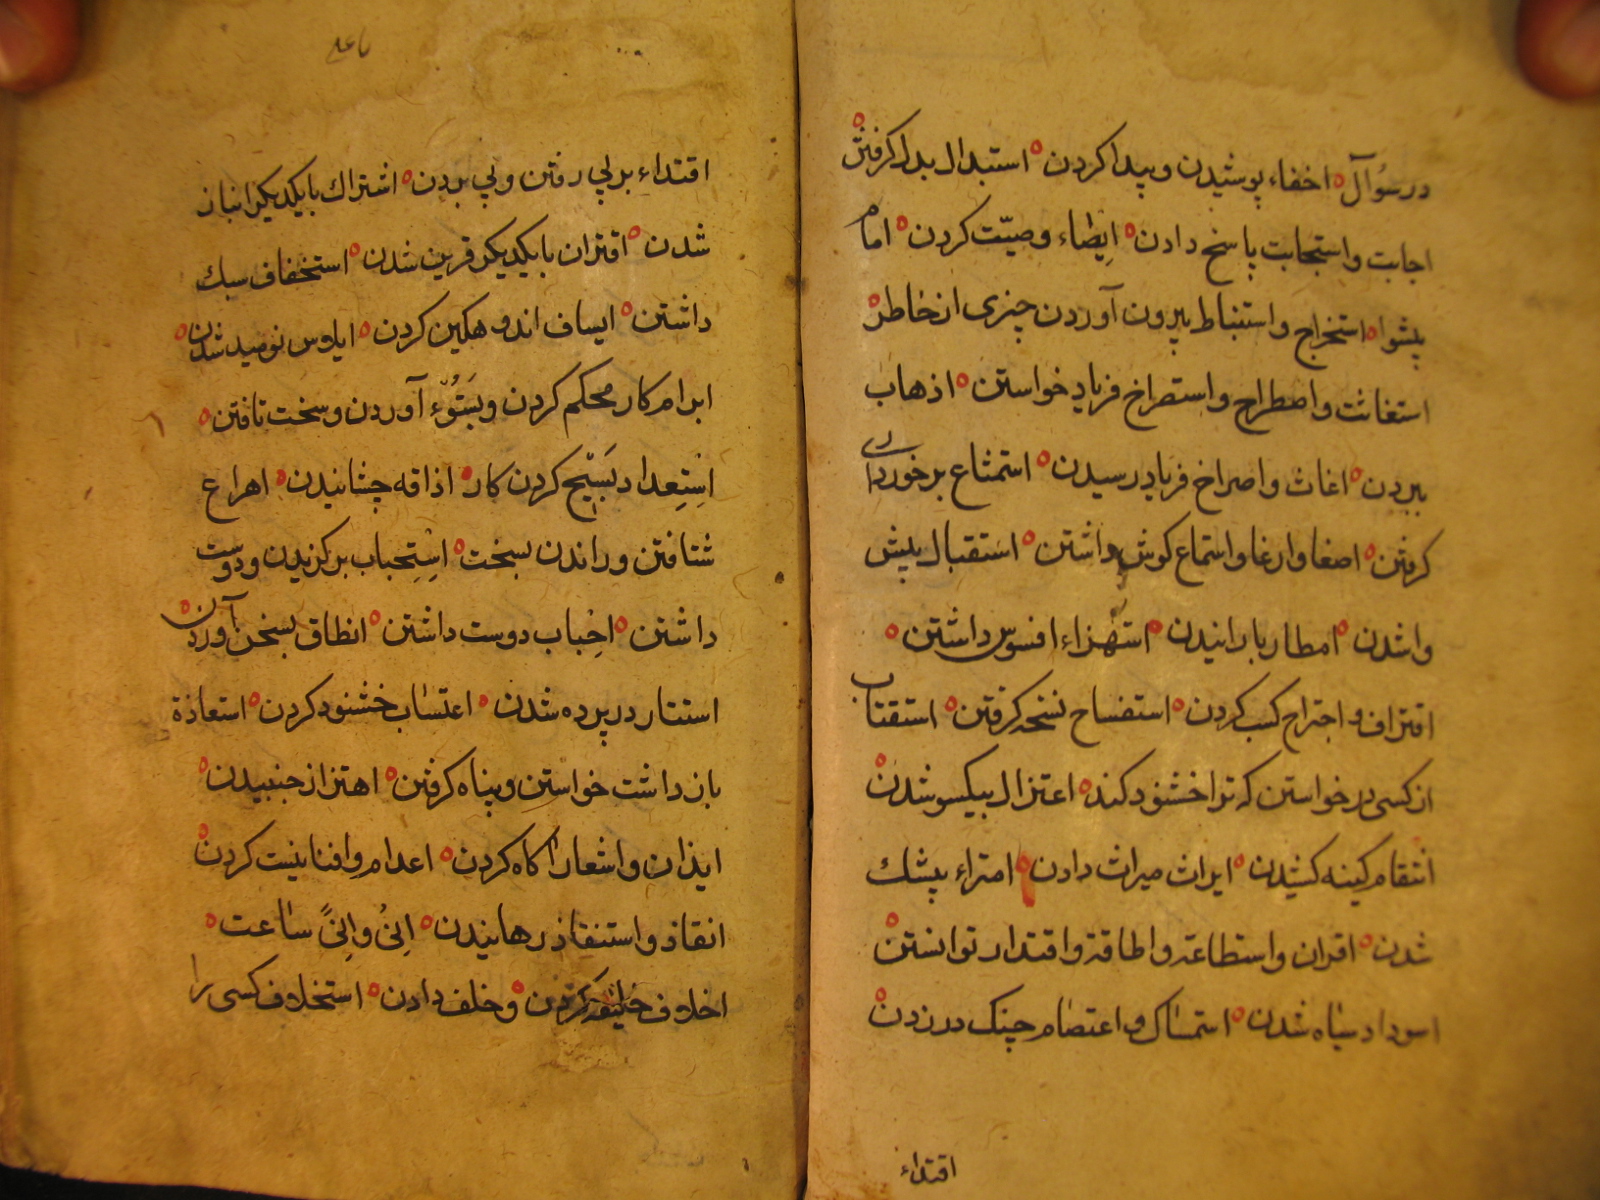 در سؤال اخفاء پوشیدن و پیدا کردن استبدال بدل کرفتن
اجابت و استجابت پاسخ دادن ایصاء وصیّت کردن امام
پیشوا استخراج و استنباط بیرون آوردن چیزی از خاطر
استغاثت و اصطراح و استصراخ فریاد خواستن اذهاب
ببردن اغاث و اصراخ فریاد رسیدن استمتاع برخورداری
کرفتن اصغا و ارغا و استماع کوش داشتن استقبال پیش
واشدن امطار بارانیدن استهزاء افسوس داشتن
اقتراف و اجتراح کسب کردن استفساح نسخه کرفتن استقتاب
از کسی درخواستن که ترا خشنود کند اعتزال بیکسو شدن
انتقام کینه کشیدن ایراث میراث دادن امتراء بشک
شدن اقران و استطاعة و اطاقة و اقتدار توانستن
اسوداد سیاه شدن استمساک و اعتصام چنک در زدن
اقتداء
اقتداء بر پی رفتن و پی بردن اشتراك با یکدیکر انباز
شدن اقتران با یکدیکر قرین شدن استخفاف سبك
داشتن ایساف اندوهکین کردن ایلاس نومید شدن
ابرام کار محکم کردن و بستوء آوردن و سخت تافتن
اِسْتِعداد بَسیْج کردن کار اذاقه چشانیدن اهراع
شتافتن و راندن بسخت اِسْتِحباب برکزیدن و دوست
داشتن احِباب دوست داشتن انطاق بسخن آوردن
استتار در پرده شدن اعتساب خشنود کردن استعاذة
بازداشت خواستن و پناه کرفتن اهتزاز جنبیدن
ایذان و اشعار آکاه کردن اعدام و افنا نیست کردن
انقاذ و استنقاذ رهانیدن اِنیُ و اِنیً ساعت
اخلاف خلیفه کردن و خلف دادن استخلاف کسی را